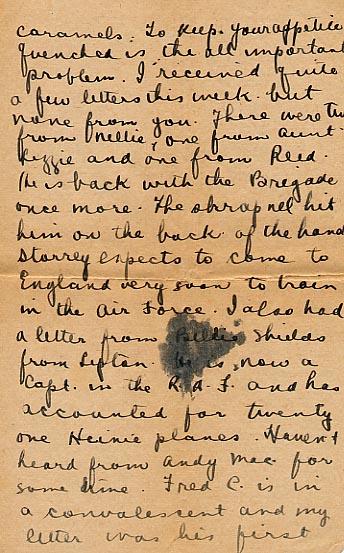 caramels. To keep your appetite
quenched is the all important
problem. I received quite
a few letters this week but
none from you. There were two
from Nellie, one from Aunt
Lizzie and one from Reed.
He is back with the Brigade
once more. The shrapnel hit
him on the back of the hand
Storrey expects to come to
England very soon to train
in the Air Force. I also had
a letter from Shields
from Lifton. He is now a
Capt. in the R.A.F. and has
accounted for twenty
one Heinie planes. Haven't
heard from Andy Mac. for
some time. Fred C. is in
a convalescent and my
letter was his first